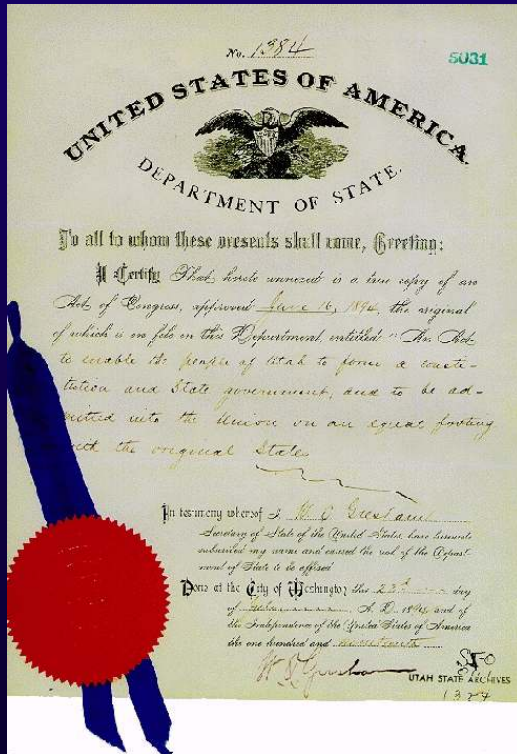 No. 1384
5031
UNITED STATES OF AMERICA.
DEPARTMENT OF STATE.
To all to whom these presents shall come, Greeting:
I Certify That hereto annexed is a true copy of an
Act of Congress, approved June 16, 1894, the original
of which is on file in this Department, entitled "An Act
to enable the people of Utah to form a consti-
tution and State government, and to be ad-
mitted into the Union on an equal footing
with the original States
In testimony whereof I W Q Gresham
Secretary of State of the United States, have hereunto
subscribed my name and caused the seal of the Depart-
ment of State to be affixed
Done at the City of Washington this 23rd day
of A.D. 1894 and of
the Independence of the United States of America
the one hundred and
W Q Gresham
UTAH STATE ARCHIVES